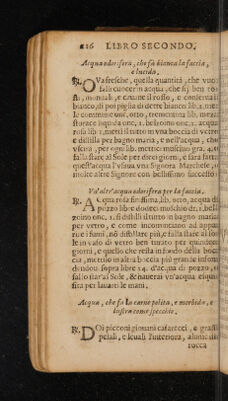 216 LIBRO SECONDO.
Acqua odorifera, che fà bianca la faccia,
e lucida.
℞. OVa fresche, quella quantità, che vuoi
falli cuocer in acqua, che sij ben to
sti, mondali, e cruane il rosso, e conserva il
bianco, di poi piglia di detre bianco lib.
termentina lib.
storace liquida onc. 1. belzoino onc. 2. acqua
rosa lib metti il tutto in vna boccia di vetro
e distilla per bagno maria, e nell'acqua, che
vscirà, per ogni lib. mettici moschio gra.
falla stare al Sole per dieci giorni, e farà fatta
quest'acqua l'vsaua vna Signora Marchese,
molte altre Signore con bellissimo successo
Vn'altr'acqua odorifera per la faccia.
℞. ACqua rosa finissima, lib. otto, acqua di
pozzo libre dodici, moschio dr. 1. bel
zoino onc. 1. si distilli il tutto in bagno maria
per vetro, e come incominciano ad appar
rue i fumi, nò distillare più, e falla stare al so
le in vaso di vetro ben turato per quindeci
giorni, e quello che resta in fondo della boc
cia, mettilo in altra boccia più grande infon
dendoui sopra libre 14. d'acqua di pozzo,
fallo star'al Sole, & hauerai vn'acqua squisi
sita per lauarsi le mani.
Acqua, che fà la carne polita, e morbida, e
lustra come specchio.
℞. DOi piccioni giouani casarecci, e grassi
pelali, e leuali l'interiora,
tocca